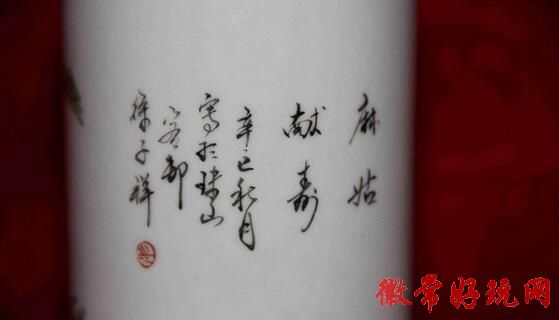 麻姑
献寿
辛巳秋月
写於珠山
客部
徐子祥
徽常好玩网